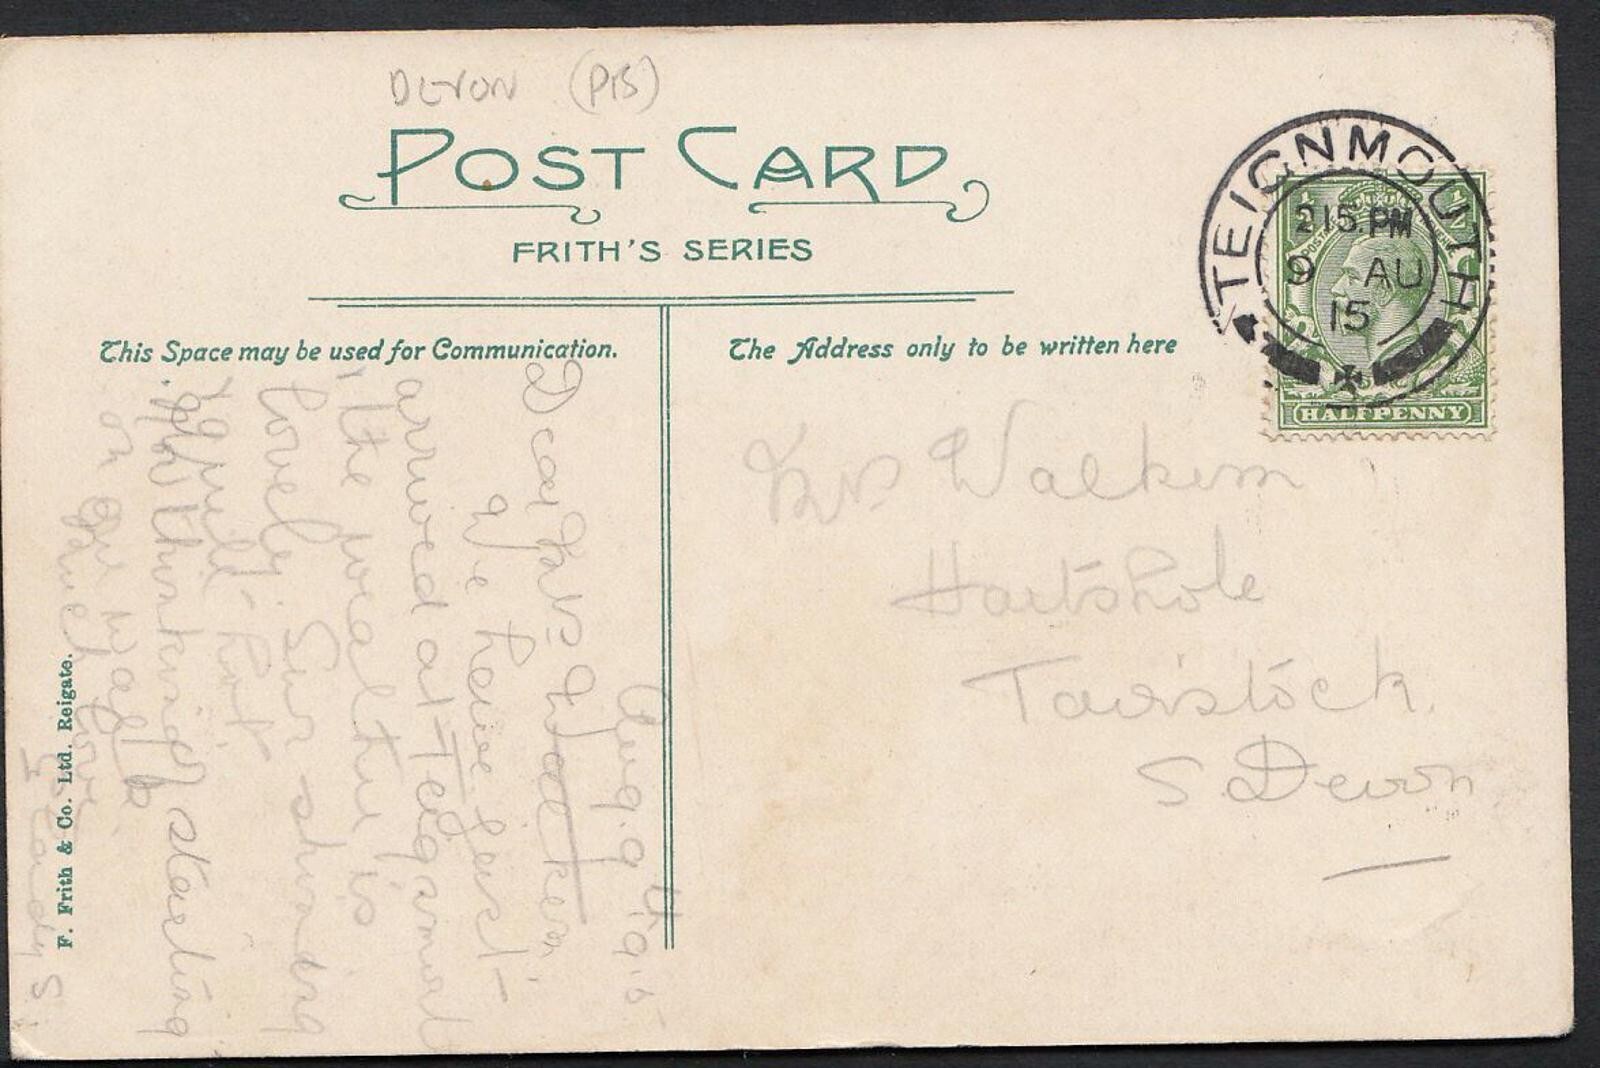 DEVON (P15)
POST CARD
FRITH'S SERIES
This Space may be used for Communication.
The Address only to be written here
TEIGNMOUTH
2 15. PM
9 AU
15
HALFPENNY
Mrs Walkem
Hartshole
Tavistock.
S Devon
Aug. 9th 1915
Dear Mrs Walkem
We have just
arrived at Teignmouth
the weather is
lovely Sun shining
hot
thinking starting
on our way
much love
F. Frith & Co. Ltd. Reigate.